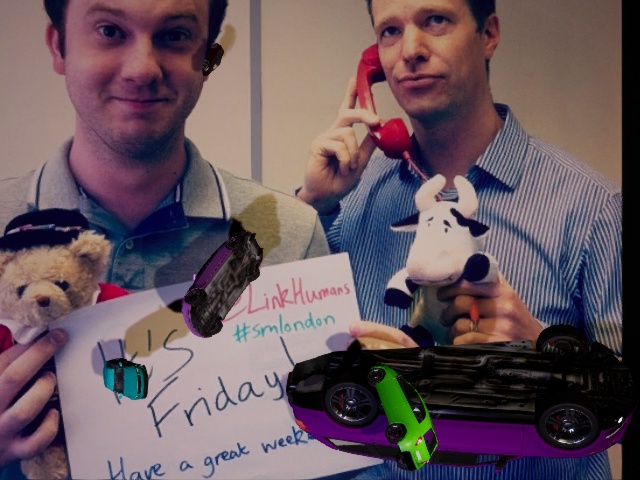 @LinkHumans
#smlondon
It's
Friday!
Have a great